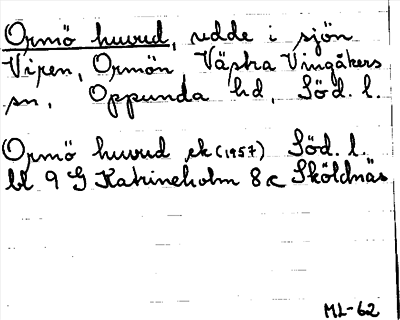 Ormö huvud, udde i sjön
Viren, Ormön, Västra Vingåkers
sn, Oppunda hd, Söd. l.
Ormö huvud ek (1957) Söd. l.
bl 9 G Katrineholm 8 c Sköldnäs
ML-62